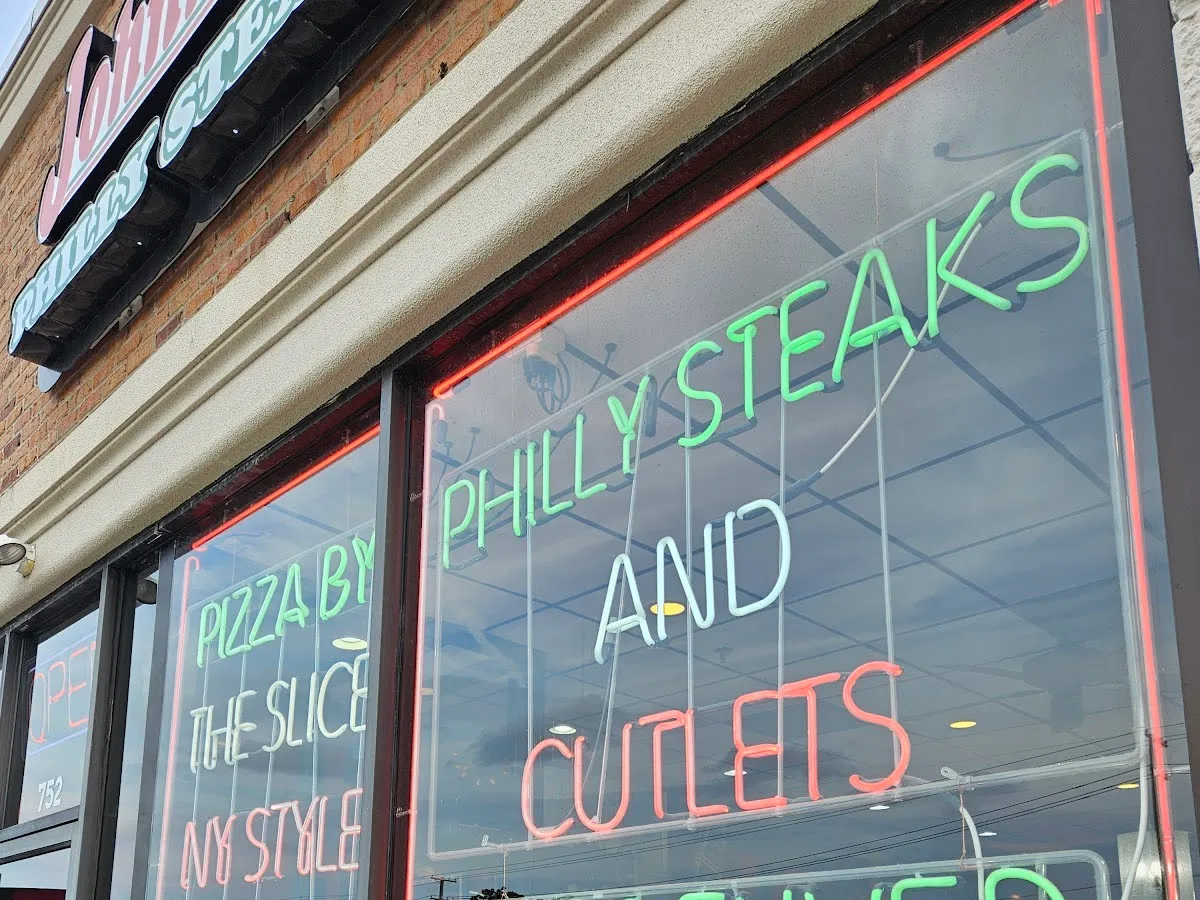 PHILLY
PHILLY STEAKS
AND
CUTLETS
PIZZA BY
THE SLICE
NY STYLE
OPE
752